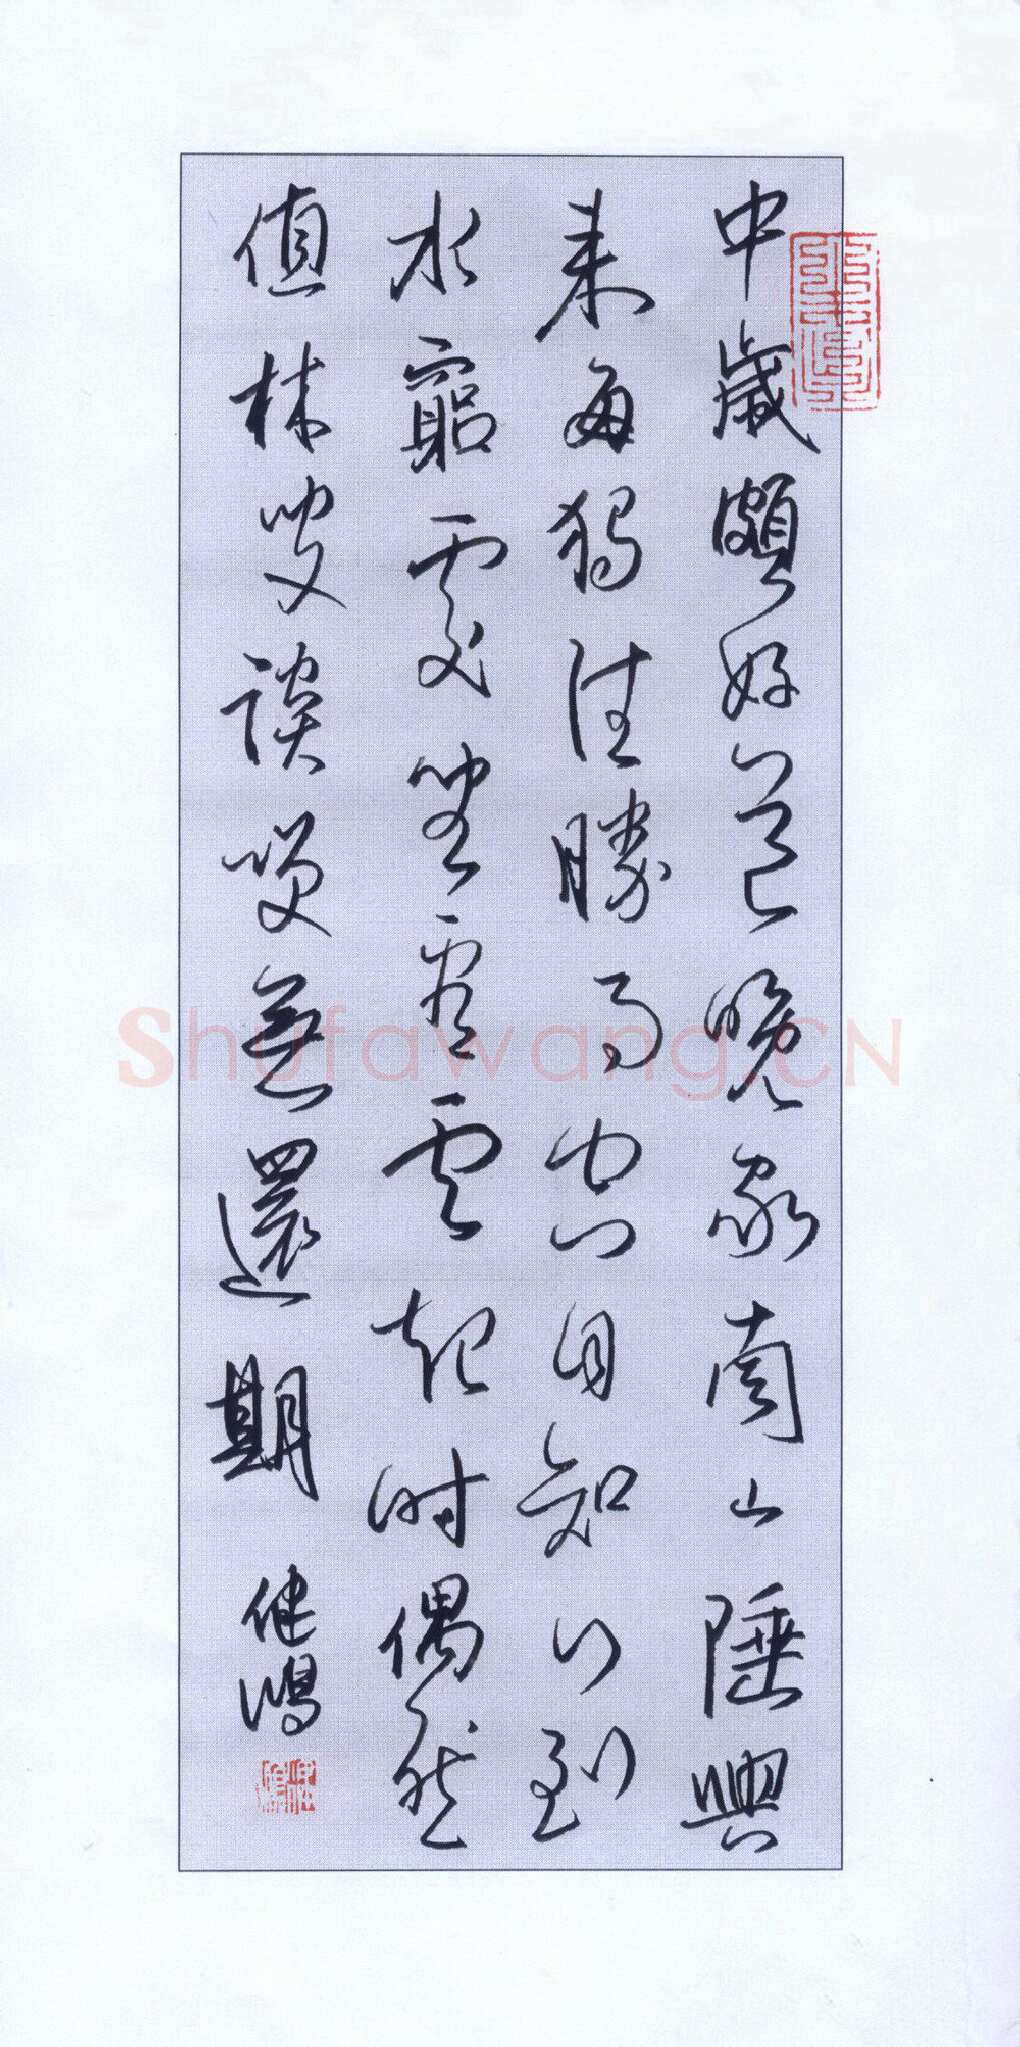 中歲頗好道晚家南山陲興
来每獨往勝事空自知行到
水窮處坐看雲起时偶然
值林叟談笑無還期
健鴻
Shufawang.CN